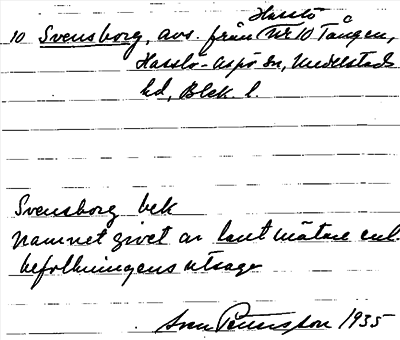 Hasslö
10 Svensborg, avs. från (Nr 10 Tången,
Hasslö-Aspö sn, Medelstads
hd, Blek. l.
Svensborg bek
namnet givet av lantmätare enl.
befolkningens utsago
Sven Petersson 1935